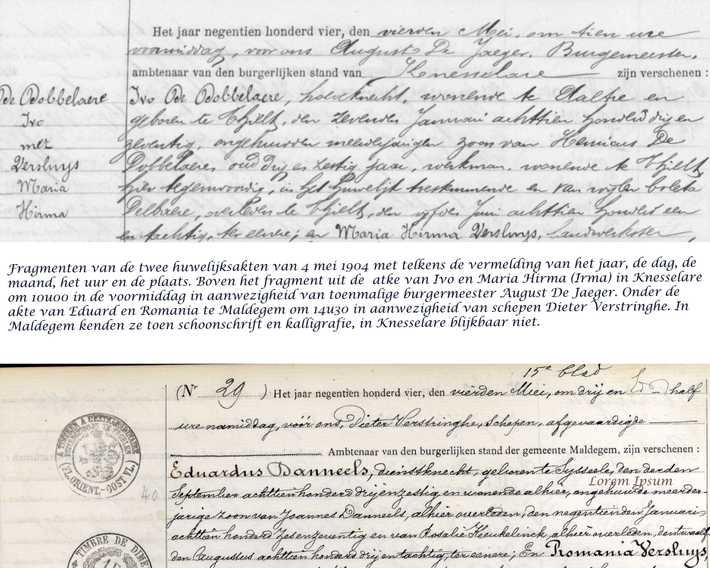 Het jaar negentien honderd vier, den vierden Mei, om tien ure
voormiddag, voor ons August De Jaeger, Burgemeester,
ambtenaar van den burgerlijken stand van Knesselare zijn verschenen :
De Dobbelaere
Ivo
met
Versluys
Maria
Hirma
Ivo De Dobbelaere, wonende te Aalter en
geboren te Thielt, den zevenden Januari achttien honderd drij en
zeventig, ongehuwden meerderjarigen zoon van De
Dobbelaere, oud drij en zestig jaar, werkman, wonende te Thielt
hier tegenwoordig, in het huwelijk toestemmende en van
overleden te Thielt, den Juni achttien honderd een
en tachtig, ter eenre; en Maria Hirma Versluys,
Fragmenten van de twee huwelijksakten van 4 mei 1904 met telkens de vermelding van het jaar, de dag, de
maand, het uur en de plaats. Boven het fragment uit de atke van Ivo en Maria Hirma (Irma) in Knesselare
om 10u00 in de voormiddag in aanwezigheid van toenmalige burgermeester August De Jaeger. Onder de
akte van Eduard en Romania te Maldegem om 14u30 in aanwezigheid van schepen Dieter Verstringhe. In
Maldegem kenden ze toen schoonschrift en kalligrafie, in Knesselare blijkbaar niet.
15e blad
(Nr 29) Het jaar negentien honderd vier, den vierden Mei, om drij en half
ure namiddag, vóór ons, Pieter Verstringhe, Schepen, afgevaardigde
Ambtenaar van den burgerlijken stand der gemeente Maldegem, zijn verschenen :
Eduardus Danneels, dienstknecht, geboren te Sijsseele, den derden
Lorem Ipsum
September achttien honderd drij en zestig en wonende alhier, ongehuwde meerder-
jarige zoon van Joannes Danneels, alhier overleden, den negentienden Januari
achttien honderd zes en zeventig en van Rosalie Heuckelinck, alhier overleden, den twaalf-
den Augustus achttien honderd drij en tachtig, ter eenre; En Romania Versluys,
40
TIMBRE DE DIME